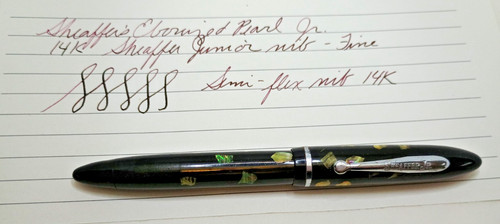 Sheaffer's Ebonized Pearl Jr.
14K Sheaffer Junior nib - Fine
Semi-flex nib 14K
SHEAFFER'S